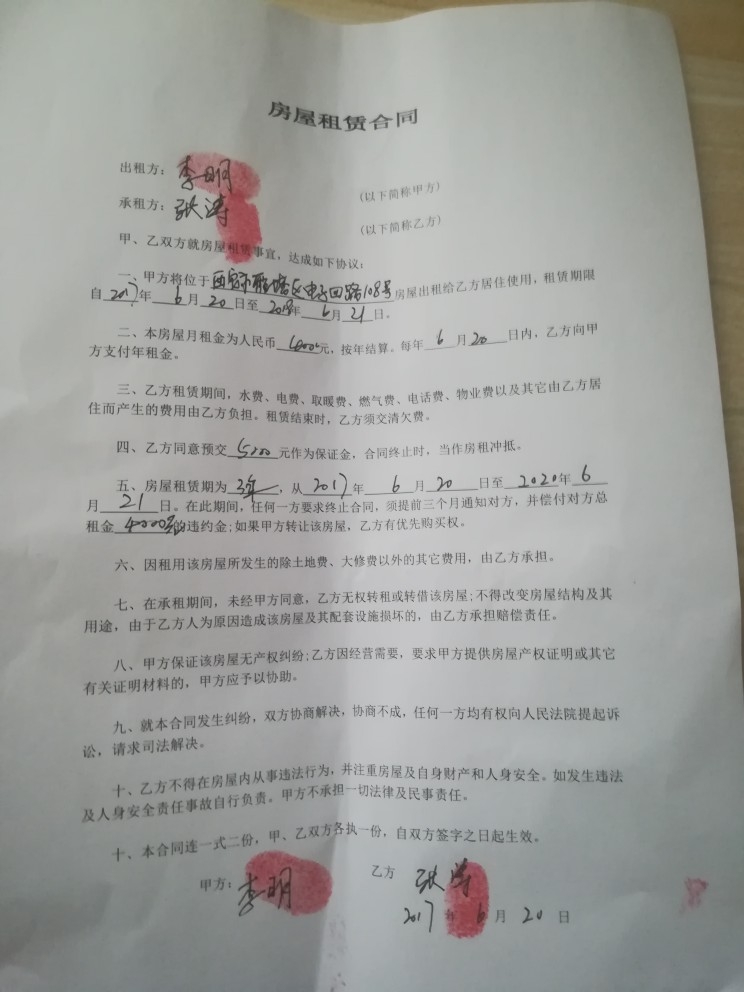 房屋租赁合同
出租方：李明 （以下简称甲方）
承租方：张涛 （以下简称乙方）
甲、乙双方就房屋租赁事宜，达成如下协议：
一、甲方将位于西安市雁塔区电子四路108号房屋出租给乙方居住使用，租赁期限
自2017年6月20日至 年6月21日。
二、本房屋月租金为人民币 元，按年结算。每年6月20日内，乙方向甲
方支付年租金。
三、乙方租赁期间，水费、电费、取暖费、燃气费、电话费、物业费以及其它由乙方居
住而产生的费用由乙方负担。租赁结束时，乙方须交清欠费。
四、乙方同意预交 元作为保证金，合同终止时，当作房租冲抵。
五、房屋租赁期为3年，从2017年6月20日至2020年6
月21日。在此期间，任何一方要求终止合同，须提前三个月通知对方，并偿付对方总
租金 的违约金;如果甲方转让该房屋，乙方有优先购买权。
六、因租用该房屋所发生的除土地费、大修费以外的其它费用，由乙方承担。
七、在承租期间，未经甲方同意，乙方无权转租或转借该房屋;不得改变房屋结构及其
用途，由于乙方人为原因造成该房屋及其配套设施损坏的，由乙方承担赔偿责任。
八、甲方保证该房屋无产权纠纷;乙方因经营需要，要求甲方提供房屋产权证明或其它
有关证明材料的，甲方应予以协助。
九、就本合同发生纠纷，双方协商解决，协商不成，任何一方均有权向人民法院提起诉
讼，请求司法解决。
十、乙方不得在房屋内从事违法行为，并注重房屋及自身财产和人身安全。如发生违法
及人身安全责任事故自行负责。甲方不承担一切法律及民事责任。
十、本合同连一式二份，甲、乙双方各执一份，自双方签字之日起生效。
甲方：李明 乙方 张涛
2017年6月20日